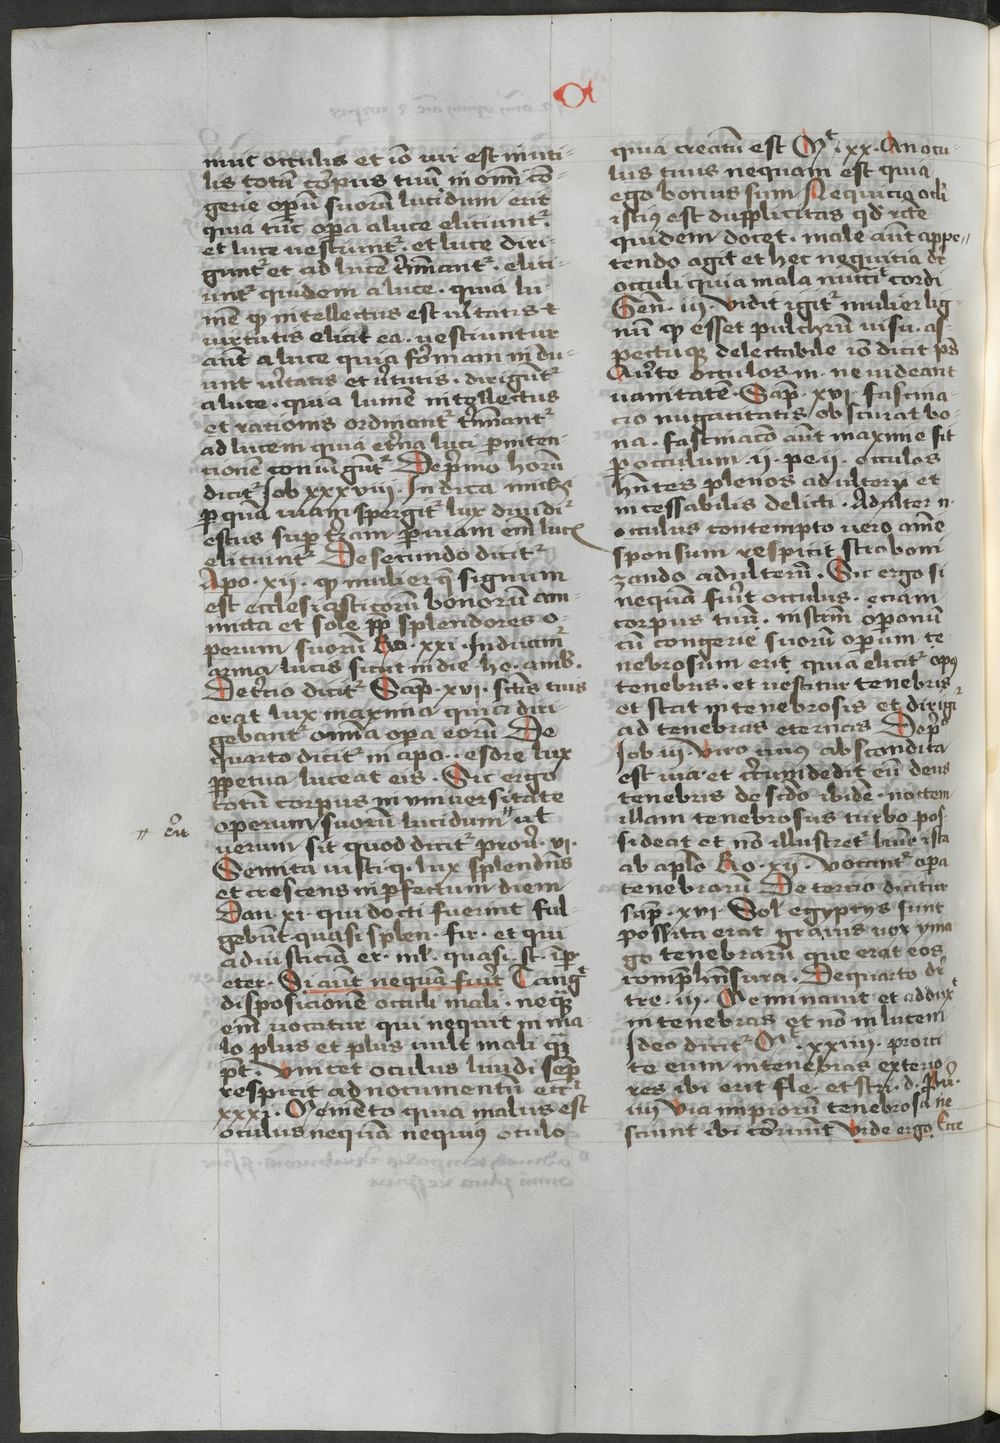 a
nuic occulis et io vir est inuti-
lis totū corpus tuū in omī cō-
gerie operū suorū lucidum erit
quia tūc opera a luce eliciuntr̄
et luce vestiuntr̄ . et luce diri-
guntr̄ et ad lucē t̄mīantr̄ . elici-
untr̄ quidem a luce . quia lu-
mē qd̄ intellectus est v̄itatis et
virtutis elicit ea . vestiuntur
aūt a luce quia formam indu-
unt v̄itatis et v̄tutis . diriguntr̄
a luce . quia lumē intellectus
et rationis ordinantr̄ t̄mīantr̄
ad lucem quia et̄na luci p̄ inten-
cionē coniūguntr̄ De p̄mo horū
dicitr̄ Job xxxviii . Indica michi
p̄ quā uiam spergitr̄ lux diuidr̄
estus sup̄ t̄ram p̄ uiam em̄ lucis
eliciuntr̄ De secundo dicitr̄
Apo . xii . qd̄ mulier q̄ signum
est ecclesiasticorū bonorū am-
micta et sole pp̄ splendores o-
perum suorū Ro . xxi . Induamr̄
arma lucis sicut in die ho . amb̄ .
De t̄cio dicitr̄ Sap̄ . xvi . sctīs tuis
erat lux maxima quia diri-
gebantr̄ om̄ia opera eorū De
quarto dicitr̄ in apo . . esdre lux
p̄petua luceat eis . Sic ergo
totū corpus in vniuersitate
operum suorū lucidum〃 ut
〃 erit
verum sit quod dicitr̄ prou̅ . vi .
Semita iusti q̄ . lux splendn̄s
et crescens in p̄fectum diem
Dan xi . qui docti fuerint ful-
gebūt quasi splen . fir . et qui
ad iusticiam er . ml̄ . quasi . st . ī p̄p
eter . Si aūt nequā fuit̄ Tangt̄
disposicionē occuli mali . neq̄
em̄ vocatur qui nequit in ma-
lo plus et plus vult mali q̄
pt̄ . vin cet oculus liuidi semp̄
respicit ad nocumentū eccī
xxxi . Memēto quia malus est
oculus nequā nequiꝰ oculo
quia creatū est Mt̄ . xx . An ocu-
lus tuus nequam est quia
ego bonus sum Nequicia oc̄li
istiꝰ est dupplicitas qd̄ r̄cte
quidem docet . male aūt appe〃
tendo agit et hec nequicia dr̄
occuli quia mala nuncī cordi
Gen̄ . iii . Vidit igitr̄ mulier lig-
nū qd̄ esset pulchrū visu . as-
pectuq̄ delectabile io dicit ps̄
Au̅te occulos m . ne videant
vanitatē . Sap̄ . xvi . fascina-
cio nugatitatis obscurat bo-
na . fascinacō aūt maxime fit
p̄ occulum . ii . pe . ii . occulos
hn̄tes plenos adulterii et
incessabilis delicti . Adulter n .
oculus contempto uero am̄e
sponsum respicit straboni
zando adulterū . Sic ergo si
nequā fuit̄ occulus . eciam
corpus tuū . in sctām oppo͞nū
cū congerie suorū operum te-
nebrosum erit quia elicitr̄ opꝰ
tenebris . et vestitur tenebris
et stat in tenebrosis et dirigr̄
ad tenebras eternas De p̄o
Job iii Viro cuius abscondita
est via et cr̄cumdedit eū deus
tenebris de scd̄o ibidē . noctem
illam tenebrosus turbo pos-
sideat et nō illustretr̄ lumē ista
ab aplo Ro . xii . vocantr̄ opera
tenebrarū De tercio dicitur
sap̄ . xvi . Sol egyptiis sunt
possita erat grauis nox yma
go tenebrarū que erat eos
compl̄hn̄sura . De quarto dr̄
tre . iii . Me minauit et adduxt̄
in tenebras et nō in lucem
Ideo dicitr̄ Mt̄ . xxiiii . proici
te eum in tenebras exterio
res ibi erit fle . et stri . d . Prū .
iiii Via impiorū tenebrosa ne
sciunt ibi corruūt Vide ergo